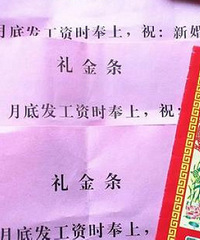 月底发工资时奉上，祝：新婚
礼金条
月底发工资时奉上，祝：
礼金条
月底发工资时奉上，